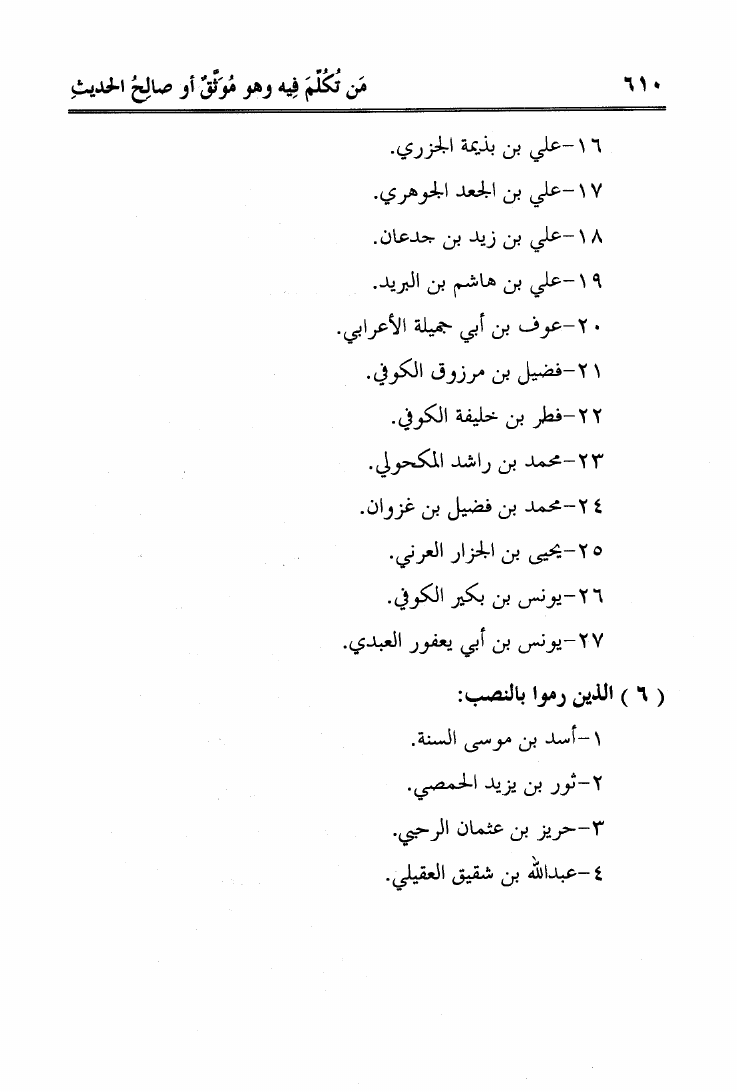 ٦١٠ مَن تُكُلِّمَ فِيه وهو مُوَثَّقٌ أو صالِحُ الحديثِ
١٦-علي بن بذيمة الجزري.
١٧-علي بن الجعد الجوهري.
١٨-علي بن زيد بن جدعان.
١٩-علي بن هاشم بن البريد.
٢٠-عوف بن أبي جميلة الأعرابي.
٢١-فضيل بن مرزوق الكوفي.
٢٢-فطر بن خليفة الكوفي.
٢٣-محمد بن راشد المكحولي.
٢٤-محمد بن فضيل بن غزوان.
٢٥-يحيى بن الجزار العرني.
٢٦-يونس بن بكير الكوفي.
٢٧-يونس بن أبي يعفور العبدي.
( ٦ ) الذين رموا بالنصب:
١-أسد بن موسى السنة.
٢-ثور بن يزيد الحمصي.
٣-حريز بن عثمان الرحبي.
٤-عبدالله بن شقيق العقيلي.